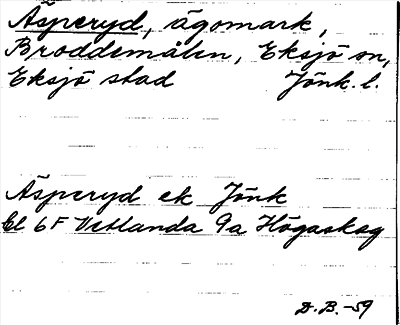 Äsperyd, ägomark,
Broddemålen, Eksjö sn,
Eksjö stad Jönk. l.
Äsperyd ek Jönk
El 6F Vetlanda 9a Högaskog
D.B.-59